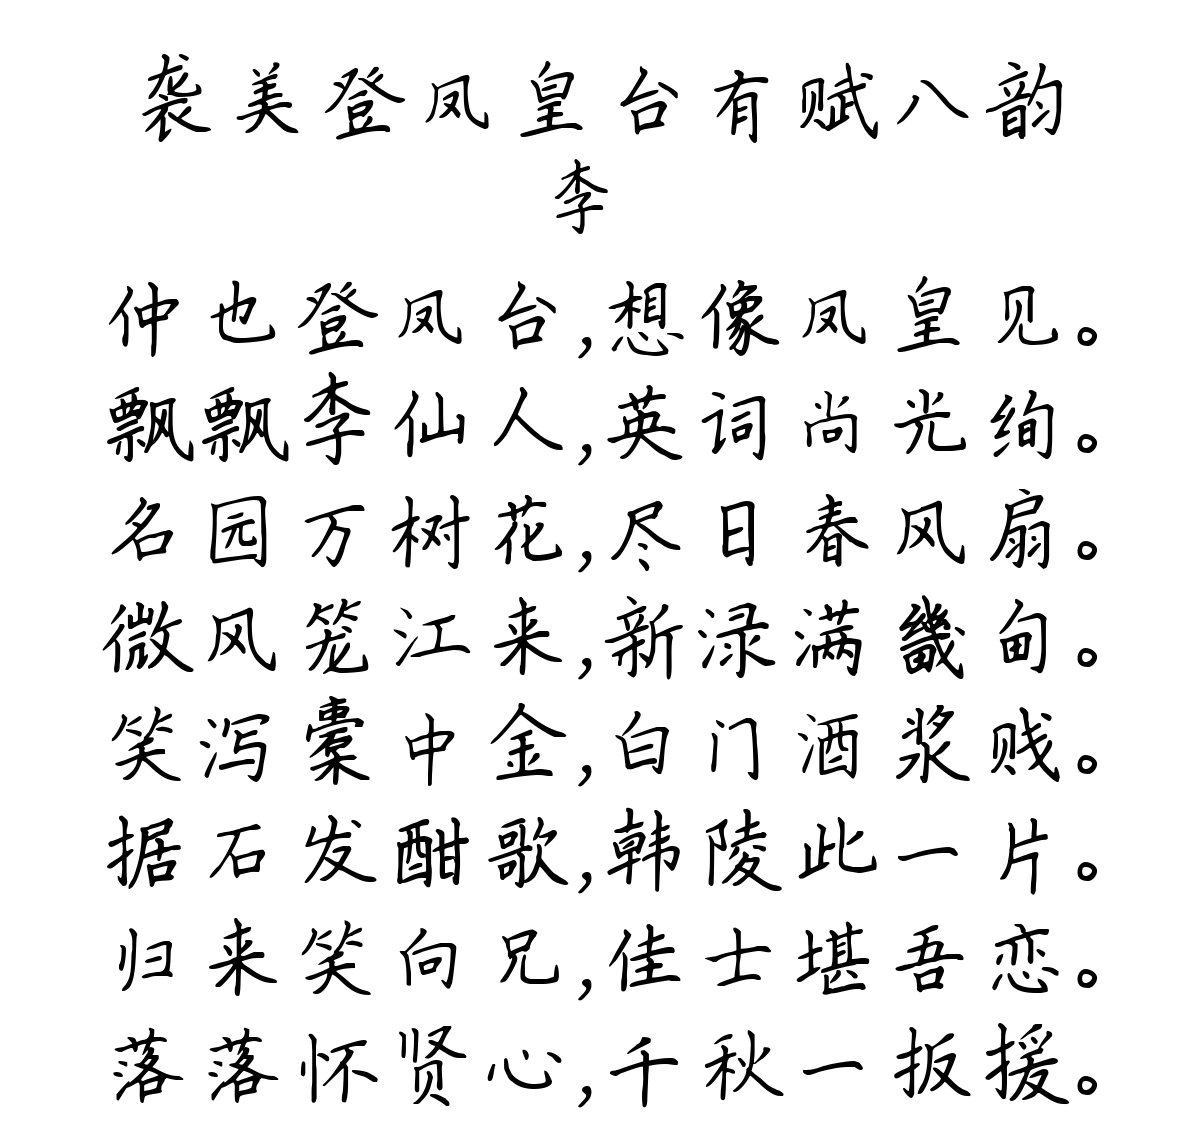 袭美登凤皇台有赋八韵
李
仲也登凤台,想像凤皇见。
飘飘李仙人,英词尚光绚。
名园万树花,尽日春风扇。
微风笼江来,新渌满畿甸。
笑泻橐中金,白门酒浆贱。
据石发酣歌,韩陵此一片。
归来笑向兄,佳士堪吾恋。
落落怀贤心,千秋一扳援。